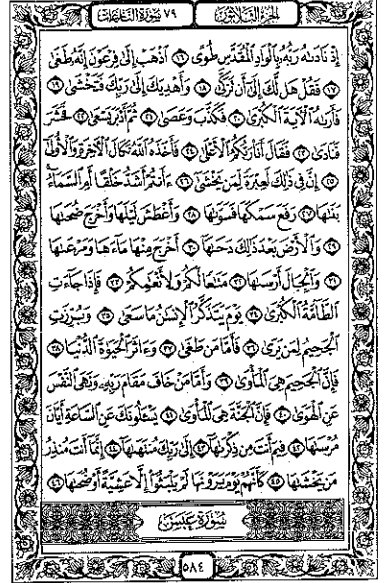 الجزء الثلاثون ٧٩ سورة النازعات
إِذْ نَادَىٰهُ رَبُّهُۥ بِٱلْوَادِ ٱلْمُقَدَّسِ طُوًى ١٦ ٱذْهَبْ إِلَىٰ فِرْعَوْنَ إِنَّهُۥ طَغَىٰ
١٧ فَقُلْ هَل لَّكَ إِلَىٰٓ أَن تَزَكَّىٰ ١٨ وَأَهْدِيَكَ إِلَىٰ رَبِّكَ فَتَخْشَىٰ ١٩
فَأَرَىٰهُ ٱلْـَٔايَةَ ٱلْكُبْرَىٰ ٢٠ فَكَذَّبَ وَعَصَىٰ ٢١ ثُمَّ أَدْبَرَ يَسْعَىٰ ٢٢ فَحَشَرَ
فَنَادَىٰ ٢٣ فَقَالَ أَنَا۠ رَبُّكُمُ ٱلْأَعْلَىٰ ٢٤ فَأَخَذَهُ ٱللَّهُ نَكَالَ ٱلْـَٔاخِرَةِ وَٱلْأُولَىٰٓ
٢٥ إِنَّ فِى ذَٰلِكَ لَعِبْرَةً لِّمَن يَخْشَىٰٓ ٢٦ ءَأَنتُمْ أَشَدُّ خَلْقًا أَمِ ٱلسَّمَآءُ
بَنَىٰهَا ٢٧ رَفَعَ سَمْكَهَا فَسَوَّىٰهَا ٢٨ وَأَغْطَشَ لَيْلَهَا وَأَخْرَجَ ضُحَىٰهَا
٢٩ وَٱلْأَرْضَ بَعْدَ ذَٰلِكَ دَحَىٰهَآ ٣٠ أَخْرَجَ مِنْهَا مَآءَهَا وَمَرْعَىٰهَا
٣١ وَٱلْجِبَالَ أَرْسَىٰهَا ٣٢ مَتَـٰعًا لَّكُمْ وَلِأَنْعَـٰمِكُمْ ٣٣ فَإِذَا جَآءَتِ
ٱلطَّآمَّةُ ٱلْكُبْرَىٰ ٣٤ يَوْمَ يَتَذَكَّرُ ٱلْإِنسَـٰنُ مَا سَعَىٰ ٣٥ وَبُرِّزَتِ
ٱلْجَحِيمُ لِمَن يَرَىٰ ٣٦ فَأَمَّا مَن طَغَىٰ ٣٧ وَءَاثَرَ ٱلْحَيَوٰةَ ٱلدُّنْيَا ٣٨
فَإِنَّ ٱلْجَحِيمَ هِىَ ٱلْمَأْوَىٰ ٣٩ وَأَمَّا مَنْ خَافَ مَقَامَ رَبِّهِۦ وَنَهَى ٱلنَّفْسَ
عَنِ ٱلْهَوَىٰ ٤٠ فَإِنَّ ٱلْجَنَّةَ هِىَ ٱلْمَأْوَىٰ ٤١ يَسْـَٔلُونَكَ عَنِ ٱلسَّاعَةِ أَيَّانَ
مُرْسَىٰهَا ٤٢ فِيمَ أَنتَ مِن ذِكْرَىٰهَآ ٤٣ إِلَىٰ رَبِّكَ مُنتَهَىٰهَآ ٤٤ إِنَّمَآ أَنتَ مُنذِرُ
مَن يَخْشَىٰهَا ٤٥ كَأَنَّهُمْ يَوْمَ يَرَوْنَهَا لَمْ يَلْبَثُوٓا۟ إِلَّا عَشِيَّةً أَوْ ضُحَىٰهَا ٤٦
سورة عبس
٥٨٤